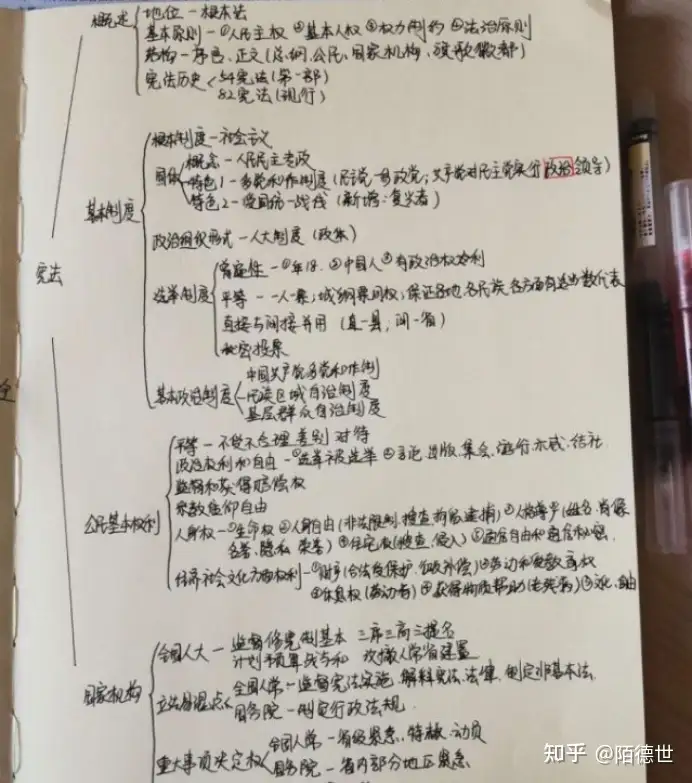 概述
地位－根本法
基本原则－①人民主权 ②基本人权 ③权力制约 ④法治原则
结构－序言、正文（总纲、公民、国家机构、旗歌徽都）
宪法历史
54宪法（第一部）
82宪法（现行）
宪法
基本制度
根本制度－社会主义
国体
概念－人民民主专政
特色1－多党合作制度（民主党－参政党；共产党对民主党实行政治领导）
特色2－爱国统一战线（新增：复兴者）
政治组织形式－人大制度（政体）
选举制度
普遍性－①年18. ②中国人 ③有政治权利
平等－一人一票；城乡同票同权；保证各地、各民族、各方面有适当数代表
直接与间接并用（直－县，间－省）
秘密投票
基本政治制度
中国共产党多党合作制
民族区域自治制度
基层群众自治制度
公民基本权利
平等－不受不合理差别对待
政治权利和自由－①选举被选举 ②言论、出版、集会、游行、示威、结社
监督和获得赔偿权
宗教信仰自由
人身权－①生命权 ②人身自由（非法限制、搜查、拘留逮捕）③人格尊严（姓名、肖像
名誉、隐私、荣誉）④住宅权（搜查、侵入）⑤通信自由和通信秘密
经济社会文化方面权利－①财产（合法受保护、征收补偿）②劳动和受教育权
④休息权（劳动者）④获得物质帮助（老疾病）⑤文化、自由
国家机构
全国人大－监督修宪制基本 三席三高三提名
计划预算战与和 改撤人常省建置
立法易混点
全国人常－监督宪法实施、解释宪法、法律、制定非基本法
国务院－制定行政法规
重大事项决定权
全国人常－省级紧急、特赦、动员
国务院－省内部分地区紧急
知乎 @陌德世